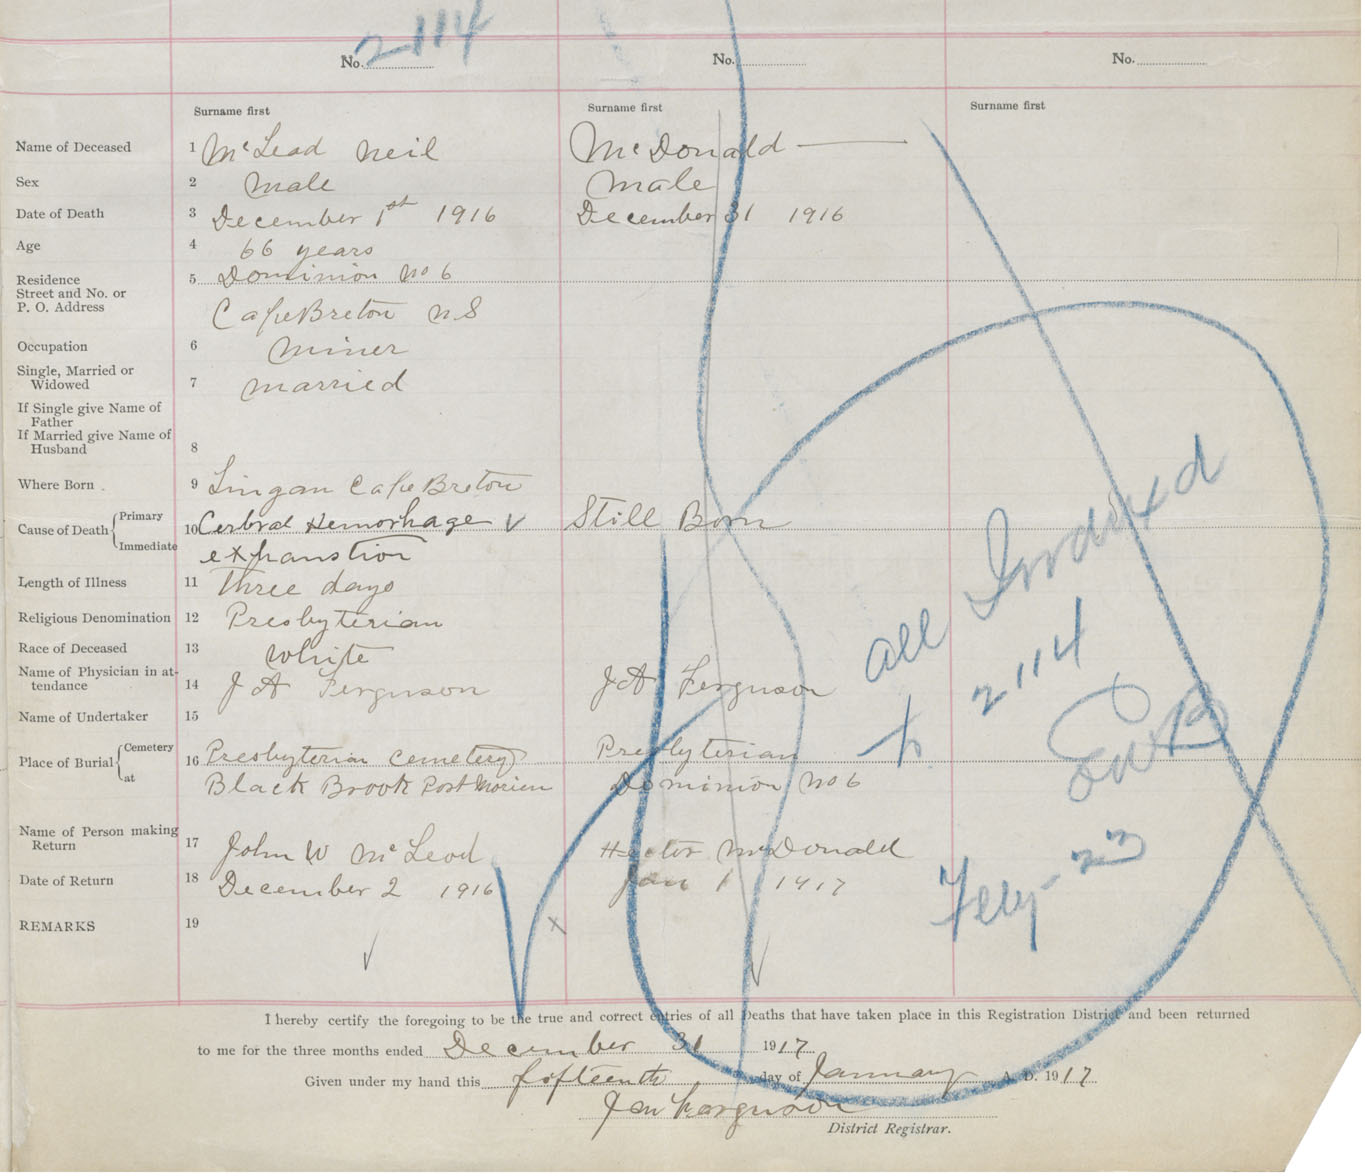 No. 2114 No. No.
Surname first Surname first Surname first
Name of Deceased 1 McLead Neil McDonald
Sex 2 Male Male
Date of Death 3 December 1st 1916 December 31 1916
Age 4 66 years
Residence 5 Dominion No 6
Street and No. or
P. O. Address Cape Breton N.S
Occupation 6 Miner
Single, Married or
Widowed 7 Married
If Single give Name of
Father
If Married give Name of
Husband 8
Where Born 9 Lingan Cape Breton
Cause of Death { Primary 10 Cerbral Hemorhage v Still Born
Immediate exhaustion
Length of Illness 11 Three days
Religious Denomination 12 Presbyterian
Race of Deceased 13 White
Name of Physician in at-
tendance 14 J A Ferguson J A Ferguson
Name of Undertaker 15
Place of Burial { Cemetery 16 Presbyterian Cemetery Presbyterian
at Black Brook Port Morien Dominion No 6
Name of Person making
Return 17 John W McLeod Hector McDonald
Date of Return 18 December 2 1916 Jan 1 1917
REMARKS 19 x
All Indexed
to 2114
EWB
Feby - 23
I hereby certify the foregoing to be the true and correct entries of all Deaths that have taken place in this Registration District and been returned
to me for the three months ended December 31 1917
Given under my hand this fifteenth day of January A. D. 1917
Ferguson
District Registrar.